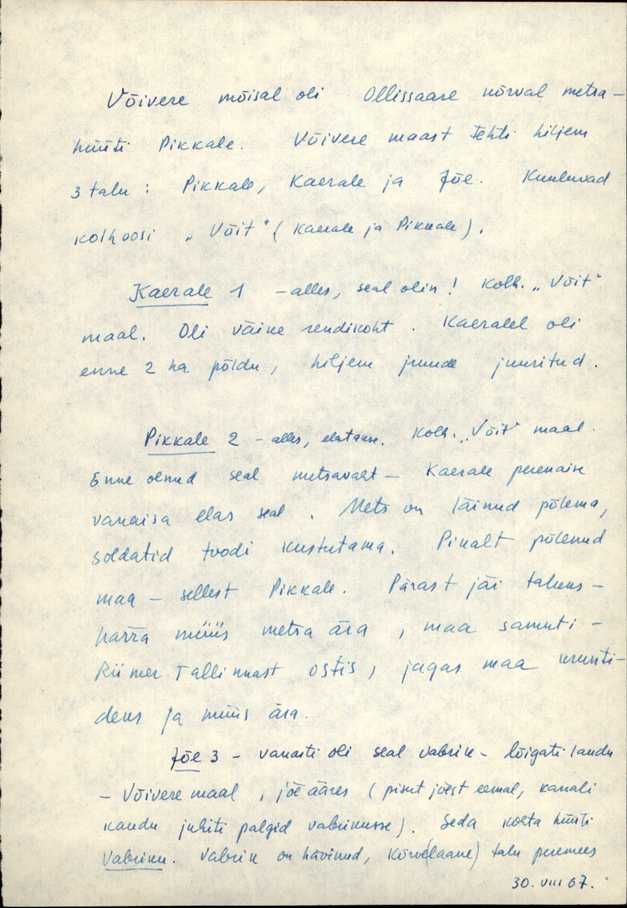 Võivere mõisal oli Ollissaare kõrval metsa-
hüüti Pikkale. Võivere maast tehti hiljem
3 talu: Pikkale, Kaerale ja Jõe. Kuuluvad
kolhoosi „Võit" (Kaerale ja Pikkale).
Kaerale 1 - alles, seal olin! Kolh. „Võit"
maal. Oli väike rendikoht. Kaeralel oli
enne 2 ha põldu, hiljem juurde juuritud.
Pikkale 2 - alles, elatakse. Kolh. „Võit" maal.
Enne olnud seal metsavaht - Kaerale perenaise
vanaisa elas seal. Mets on läinud põlema,
soldatid toodi kustutama. Pikalt põlenud
maa - sellest Pikkale. Pärast jäi taluks -
härra müüs metsa ära, maa samuti -
Riimer Tallinnast ostis, jagas maa krunti-
deks ja müüs ära.
Jõe 3 - vanasti oli seal vabrik - lõigati laudu
- Võivere maal, jõe ääres (pisut jõest eemal, kanali
kaudu juhiti palgid vabrikusse). Seda kohta hüüti
Vabriku. Vabrik on hävinud, Kõrve(laane) talu peremees
30. VIII 67.